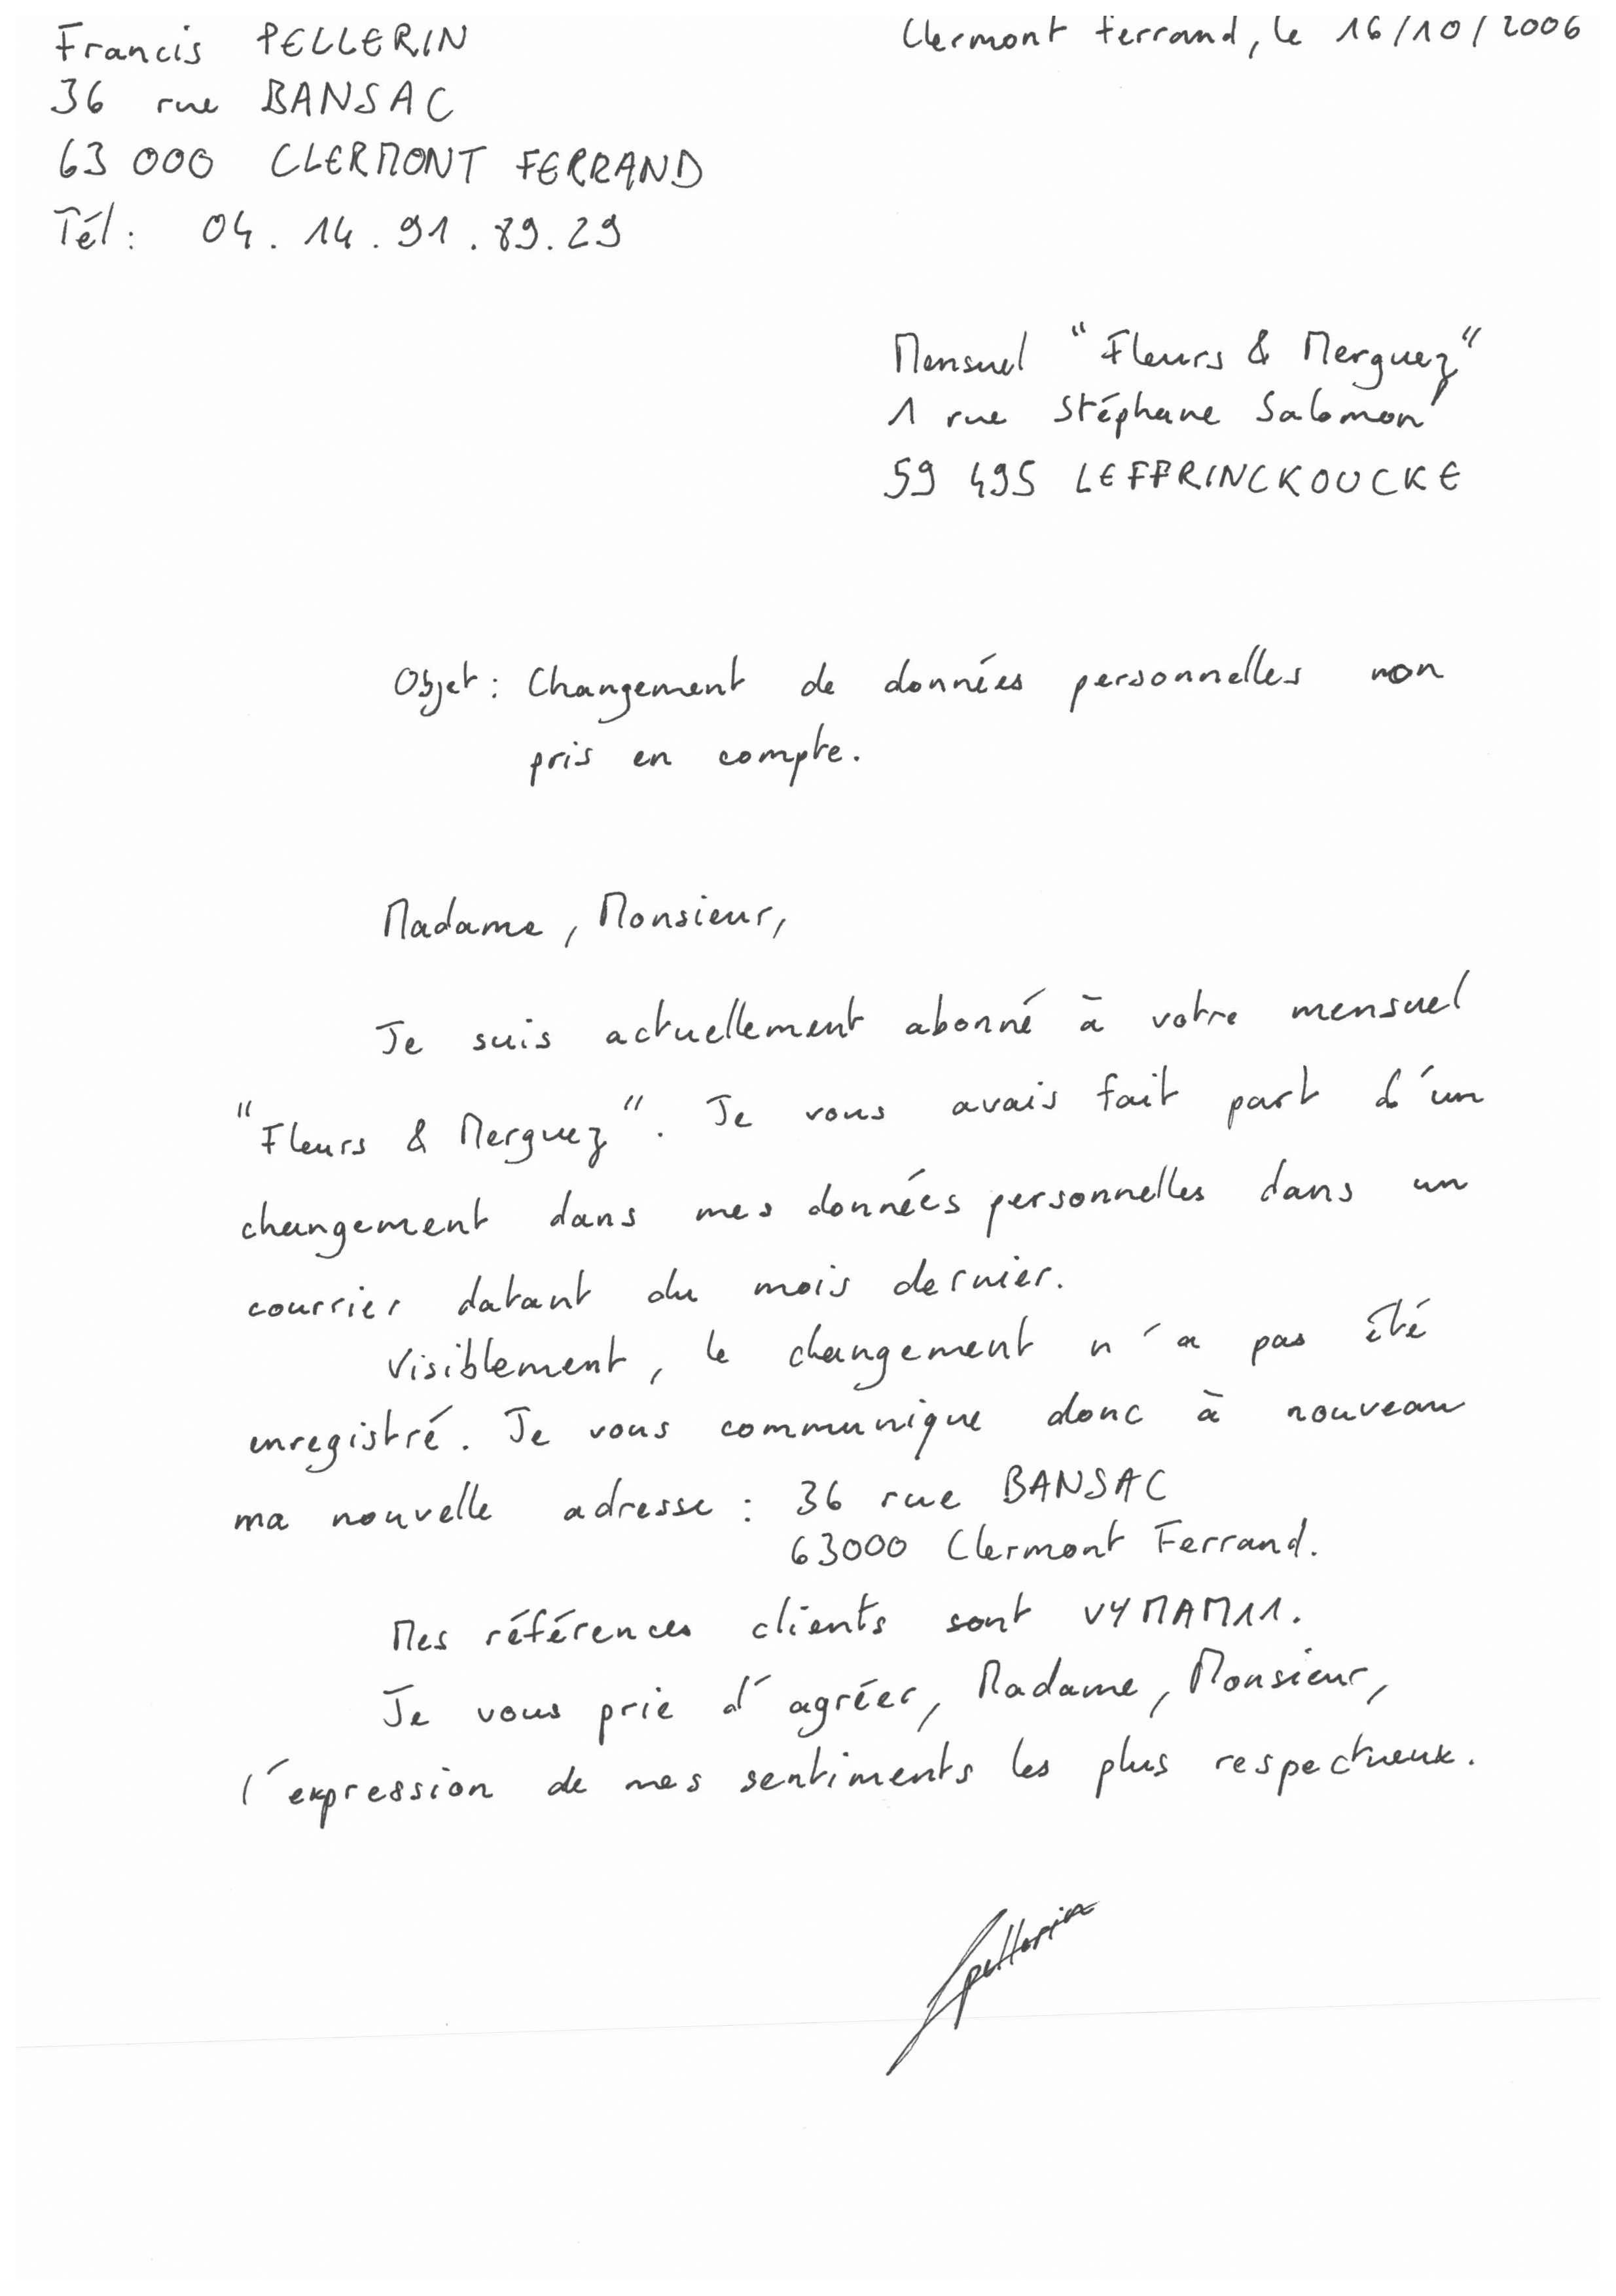 Francis PELLERIN
36 rue BANSAC
63 000 CLERMONT FERRAND
Tél : 04. 14. 91. 89. 29
Clermont Ferrand, le 16/10/2006
Mensuel "Fleurs & Merguez"
1 rue Stéphane Salomon
59 495 LEFFRINCKOUCKE
Objet : Changement de données personnelles non
pris en compte.
Madame, Monsieur,
Je suis actuellement abonné à votre mensuel
"Fleurs & Merguez". Je vous avais fait part d'un
changement dans mes données personnelles dans un
courrier datant du mois dernier.
Visiblement, le changement n'a pas été
enregistré. Je vous communique donc à nouveau
ma nouvelle adresse : 36 rue BANSAC
63000 Clermont Ferrand.
Mes références clients sont VYMAM11.
Je vous prie d'agréer, Madame, Monsieur,
l'expression de mes sentiments les plus respectueux.
fpellerin